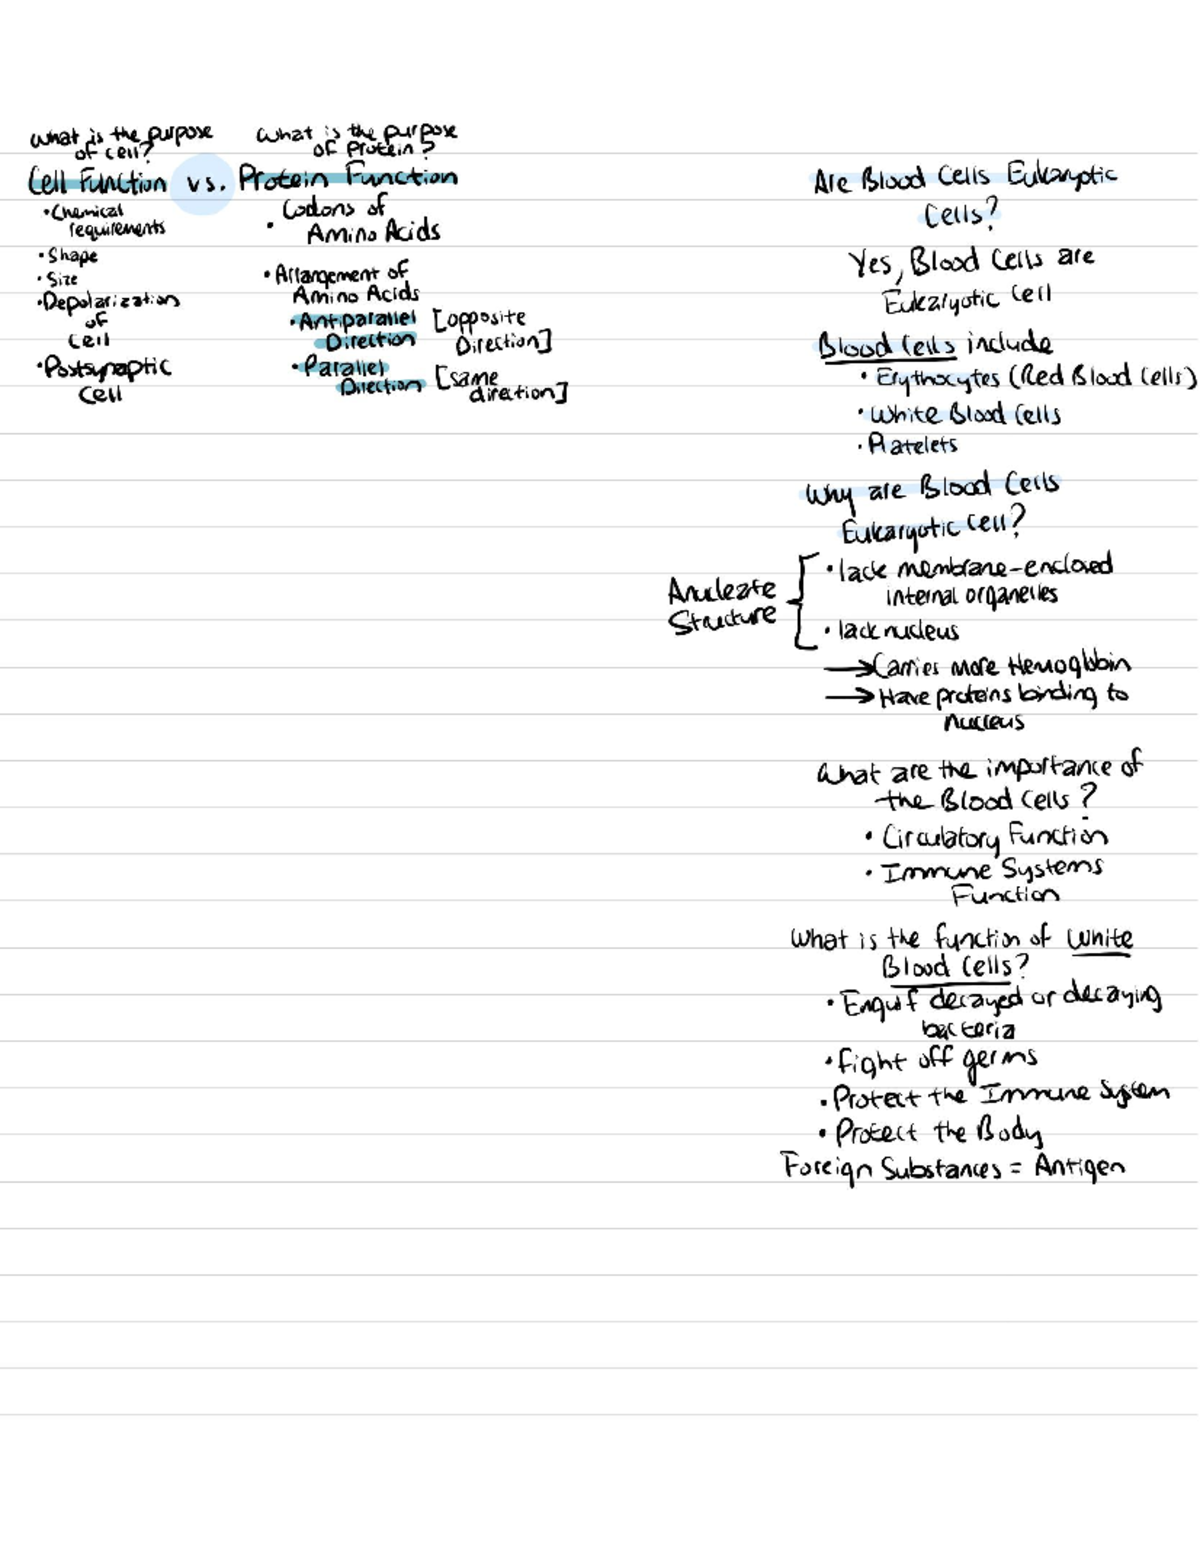 What is the purpose
of cell?
Cell Function vs.
• Chemical
requirements
• Shape
• Size
• Depolarization
of
Cell
• Postsynaptic
Cell
What is the purpose
of Protein?
Protein Function
Codons of
• Amino Acids
• Arrangement of
Amino Acids
• Antiparallel [opposite
Direction Direction]
• Parallel [same
Direction direction]
Are Blood Cells Eukaryotic
Cells?
Yes, Blood Cells are
Eukaryotic Cell
Blood Cells include
• Erythocytes (Red Blood Cells)
• White Blood Cells
• Platelets
Why are Blood Cells
Eukaryotic Cell?
Anucleate
Structure
• lack membrane-enclosed
internal organelles
• lack nucleus
→ Carries more Hemoglobin
→ Have proteins binding to
nucleus
What are the importance of
the Blood Cells?
• Circulatory Function
• Immune Systems
Function
What is the function of White
Blood Cells?
• Engulf decayed or decaying
bacteria
• Fight off germs
• Protect the Immune System
• Protect the Body
Foreign Substances = Antigen